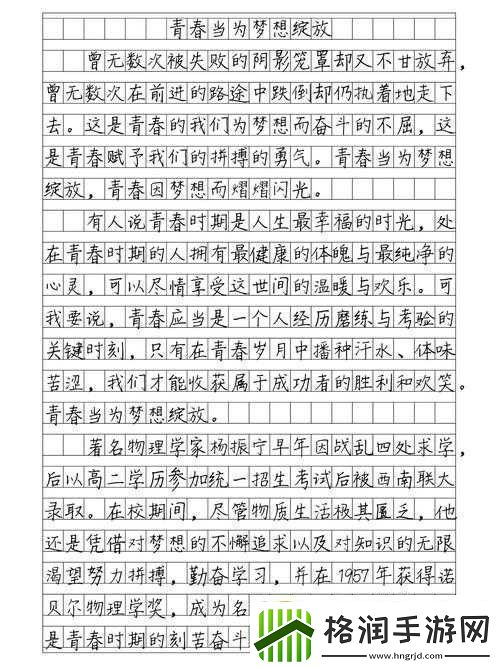 青春当为梦想绽放
曾无数次被失败的阴影笼罩却又不甘放弃，
曾无数次在前进的路途中跌倒却仍执着地走下
去。这是青春的我们为梦想而奋斗的不屈，这
是青春赋予我们的拼搏的勇气。青春当为梦想
绽放，青春因梦想而熠熠闪光。
有人说青春时期是人生最幸福的时光，处
在青春时期的人拥有最健康的体魄与最纯净的
心灵，可以尽情享受这世间的温暖与欢乐。可
我要说，青春应当是一个人经历磨练与考验的
关键时刻，只有在青春岁月中播种汗水、体味
苦涩，我们才能收获属于成功者的胜利和欢笑。
青春当为梦想绽放。
著名物理学家杨振宁早年因战乱四处求学，
后以高二学历参加统一招生考试后被西南联大
录取。在校期间，尽管物质生活极其匮乏，他
还是凭借对梦想的不懈追求以及对知识的无限
渴望努力拼搏，勤奋学习，并在1957年获得诺
贝尔物理学奖，成为名
是青春时期的刻苦奋斗
格润手游网
www.hngrjd.com